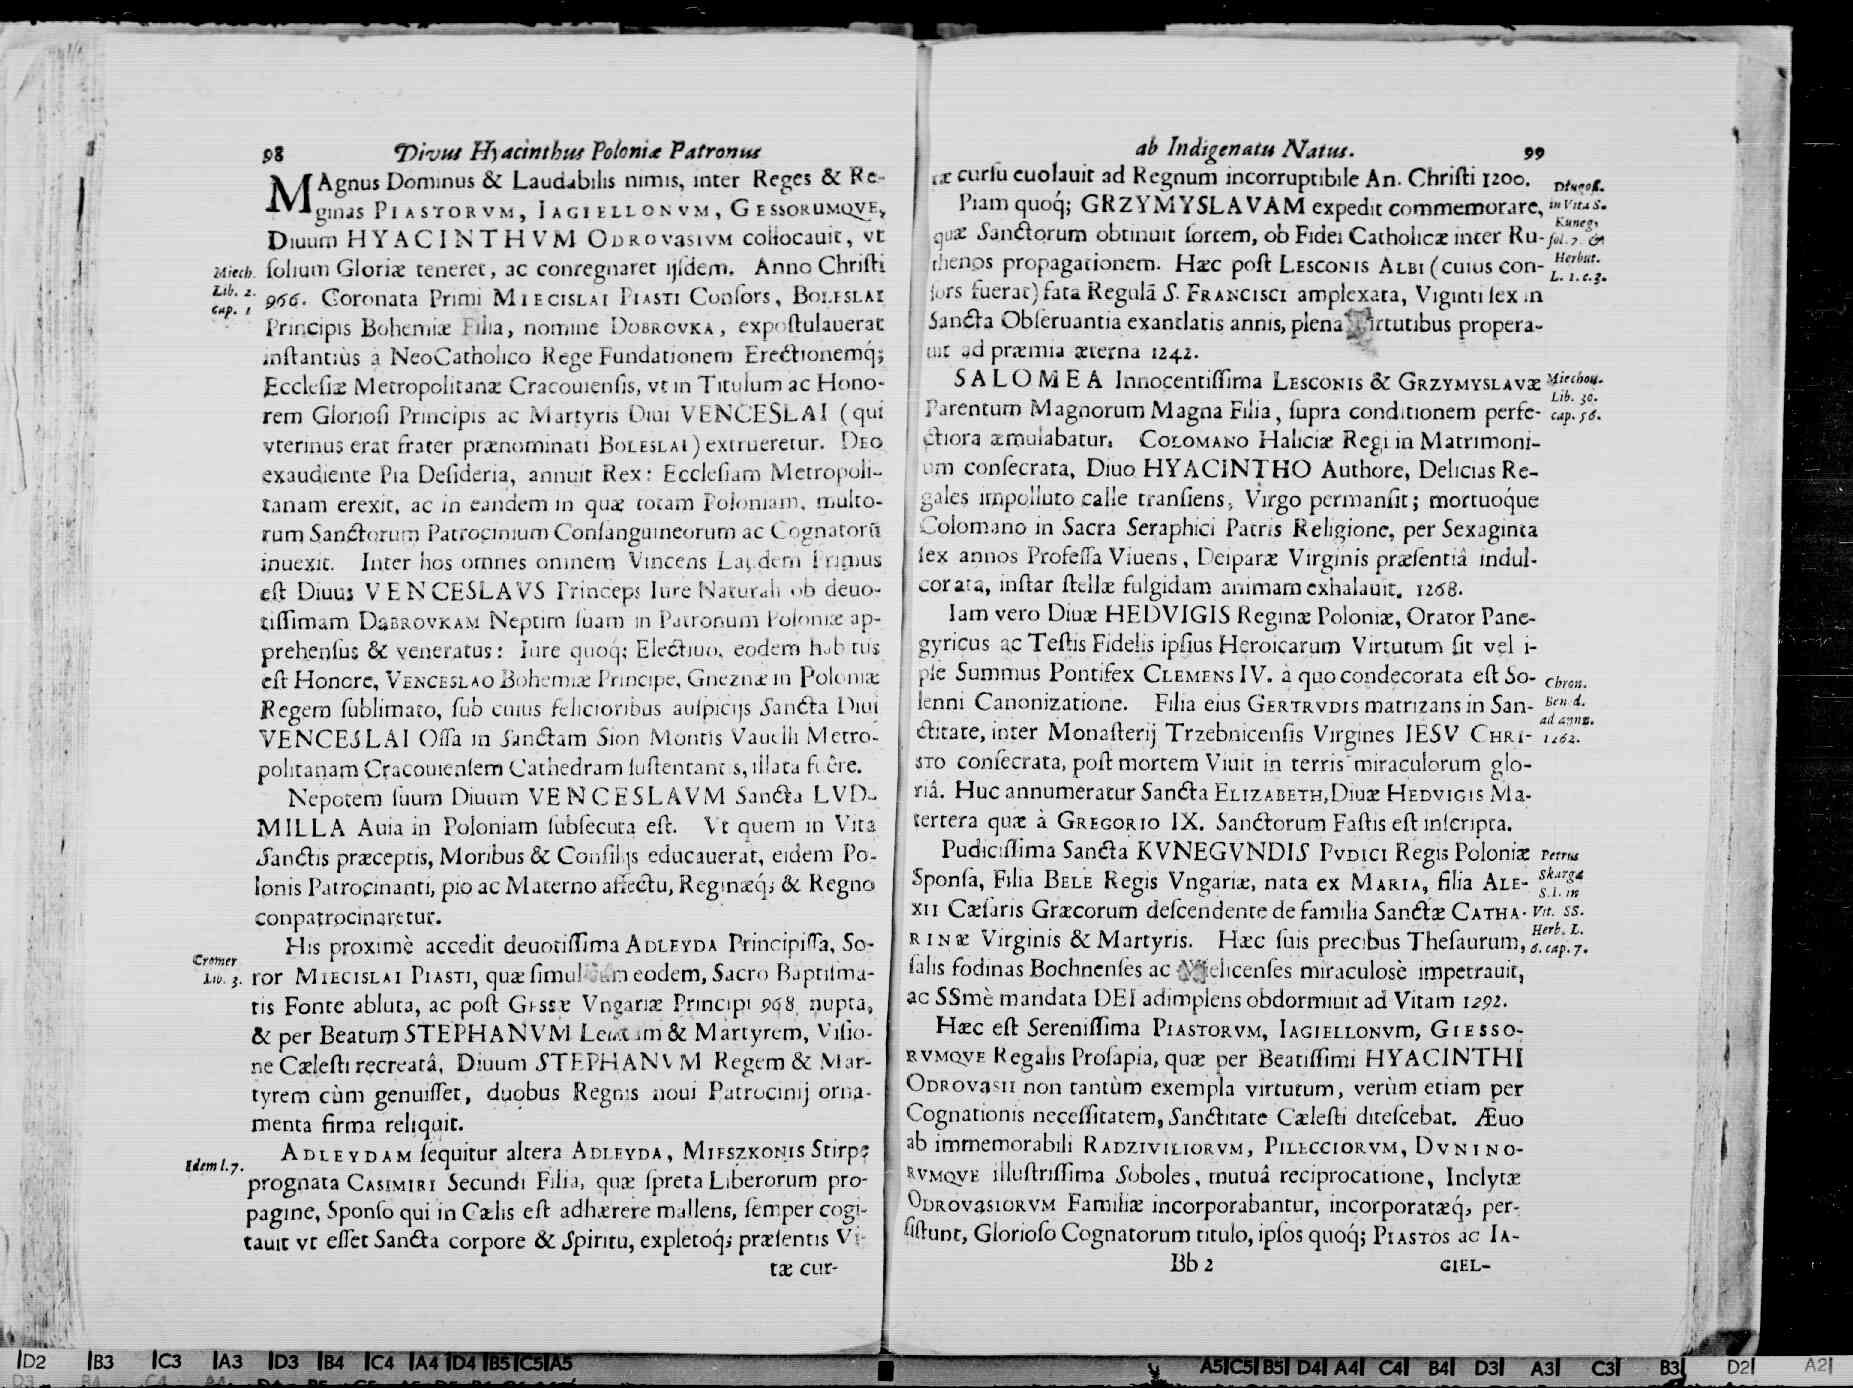 98 Divus Hyacinthus Poloniæ Patronus
MAgnus Dominus & Laudabilis nimis, inter Reges & Re-
ginas PIASTORVM, IAGIELLONVM, GESSORUMQVE,
Diuum HYACINTHVM ODROVASIVM collocauit, vt
solium Gloriæ teneret, ac conregnaret ijsdem. Anno Christi
Miech.
Lib. 2.
cap. 1
966. Coronata Primi MIECISLAI PIASTI Consors, BOLESLAI
Principis Bohemiæ Filia, nomine DOBROVKA, expostulauerat
instantiùs a NeoCatholico Rege Fundationem Erectionemq́;
Ecclesiæ Metropolitanæ Cracouiensis, vt in Titulum ac Hono-
rem Gloriosi Principis ac Martyris Diui VENCESLAI (qui
vterinus erat frater prænominati BOLESLAI) extrueretur. DEO
exaudiente Pia Desideria, annuit Rex: Ecclesiam Metropoli-
tanam erexit, ac in eandem in quæ totam Poloniam, multo-
rum Sanctorum Patrocinium Consanguineorum ac Cognatorũ
inuexit. Inter hos omnes oninem Vincens Laudem Primus
est Diuus VENCESLAVS Princeps Iure Naturali ob deuo-
tissimam DaBROVKAM Neptim suam in Patronum Poloniæ ap-
prehensus & veneratus: Iure quoq́; Electiuo, eodem habitus
est Honore, VENCESLAO Bohemiæ Principe, Gneznæ in Poloniæ
Regem sublimato, sub cuius felicioribus auspicijs Sancta Diui
VENCESLAI Ossa in Sanctam Sion Montis Vauelli Metro-
politanam Cracouiensem Cathedram sustentantes, illata fuêre.
Nepotem suum Diuum VENCESLAVM Sancta LVD-
MILLA Auia in Poloniam subsecuta est. Vt quem in Vita
Sanctis præceptis, Moribus & Consilijs educauerat, eidem Po-
lonis Patrocinanti, pio ac Materno affectu, Reginæq́; & Regno
conpatrocinaretur.
His proximè accedit deuotissima ADLEYDA Principissa, So-
Cromer
Lib. 3.
ror MIECISLAI PIASTI, quæ simul cum eodem, Sacro Baptisma-
tis Fonte abluta, ac post GESSÆ Vngariæ Principi 968 nupta,
& per Beatum STEPHANVM Leuitam & Martyrem, Visio-
ne Cælesti recreatâ, Diuum STEPHANVM Regem & Mar-
tyrem cùm genuisset, duobus Regnis noui Patrocinij orna-
menta firma reliquit.
ADLEYDAM sequitur altera ADLEYDA, MIESZKONIS Stirpe
Idem l. 7.
prognata CASIMIRI Secundi Filia, quæ spreta Liberorum pro-
pagine, Sponso qui in Cælis est adhærere mallens, semper cogi-
tauit vt esset Sancta corpore & Spiritu, expletoq́; præsentis Vi-
tæ cur-
ab Indigenatu Natus. 99
tæ cursu euolauit ad Regnum incorruptibile An. Christi 1200.
Piam quoq́; GRZYMYSLAVAM expedit commemorare,
Długoss.
in Vita S.
Kuneg.
fol. 7. &
Herbut.
L. 1. c. 3.
quæ Sanctorum obtinuit sortem, ob Fidei Catholicæ inter Ru-
thenos propagationem. Hæc post LESCONIS ALBI (cuius con-
sors fuerat) fata Regulã S. FRANCISCI amplexata, Viginti sex in
Sancta Obseruantia exantlatis annis, plena Virtutibus propera-
uit ad præmia æterna 1242.
SALOMEA Innocentissima LESCONIS & GRZYMYSLAVÆ
Miechou.
Lib. 30.
cap. 56.
Parentum Magnorum Magna Filia, supra conditionem perfe-
ctiora æmulabatur. COLOMANO Haliciæ Regi in Matrimoni-
um consecrata, Diuo HYACINTHO Authore, Delicias Re-
gales impolluto calle transiens, Virgo permansit; mortuoque
Colomano in Sacra Seraphici Patris Religione, per Sexaginta
sex annos Professa Viuens, Deiparæ Virginis præsentiâ indul-
corata, instar stellæ fulgidam animam exhalauit. 1268.
Iam vero Diuæ HEDVIGIS Reginæ Poloniæ, Orator Pane-
gyricus ac Testis Fidelis ipsius Heroicarum Virtutum sit vel i-
pse Summus Pontifex CLEMENS IV. à quo condecorata est So-
Chron.
Bened.
ad annũ.
1262.
lenni Canonizatione. Filia eius GERTRVDIS matrizans in San-
ctitate, inter Monasterij Trzebnicensis Virgines IESV CHRI-
STO consecrata, post mortem Viuit in terris miraculorum glo-
riâ. Huc annumeratur Sancta ELIZABETH, Diuæ HEDVIGIS Ma-
tertera quæ à GREGORIO IX. Sanctorum Fastis est inscripta.
Pudicissima Sancta KVNEGVNDIS PVDICI Regis Poloniæ
Petrus
Skarga
S.I. in
Vit. SS.
Herb. L.
6. cap. 7.
Sponsa, Filia BELE Regis Vngariæ, nata ex MARIA, filia ALE-
XII Cæsaris Græcorum descendente de familia Sanctæ CATHA-
RINæ Virginis & Martyris. Hæc suis precibus Thesaurum,
salis fodinas Bochnenses ac Vielicenses miraculosè impetrauit,
ac SSmè mandata DEI adimplens obdormiuit ad Vitam 1292.
Hæc est Serenissima PIASTORVM, IAGIELLONVM, GIESSO-
RVMQVE Regalis Prosapia, quæ per Beatissimi HYACINTHI
ODROVASII non tantùm exempla virtutum, verùm etiam per
Cognationis necessitatem, Sanctitate Cælesti ditescebat. Æuo
ab immemorabili RADZIVILIORVM, PILECCIORVM, DVNINO-
RVMQVE illustrissima Soboles, mutuâ reciprocatione, Inclytæ
ODROVASIORVM Familiæ incorporabantur, incorporatæq́, per-
sistunt, Glorioso Cognatorum titulo, ipsos quoq́; PIASTOS ac IA-
Bb 2 GIEL-
D2 B3 C3 A3 D3 B4 C4 A4 D4 B5 C5 A5
A5 C5 B5 D4 A4 C4 B4 D3 A3 C3 B3 D2 A2